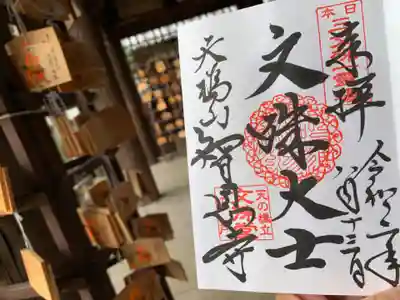 日本三
奉拝
令和二年
八月十三日
文殊大士
天橋山
智恩寺
天の橋立